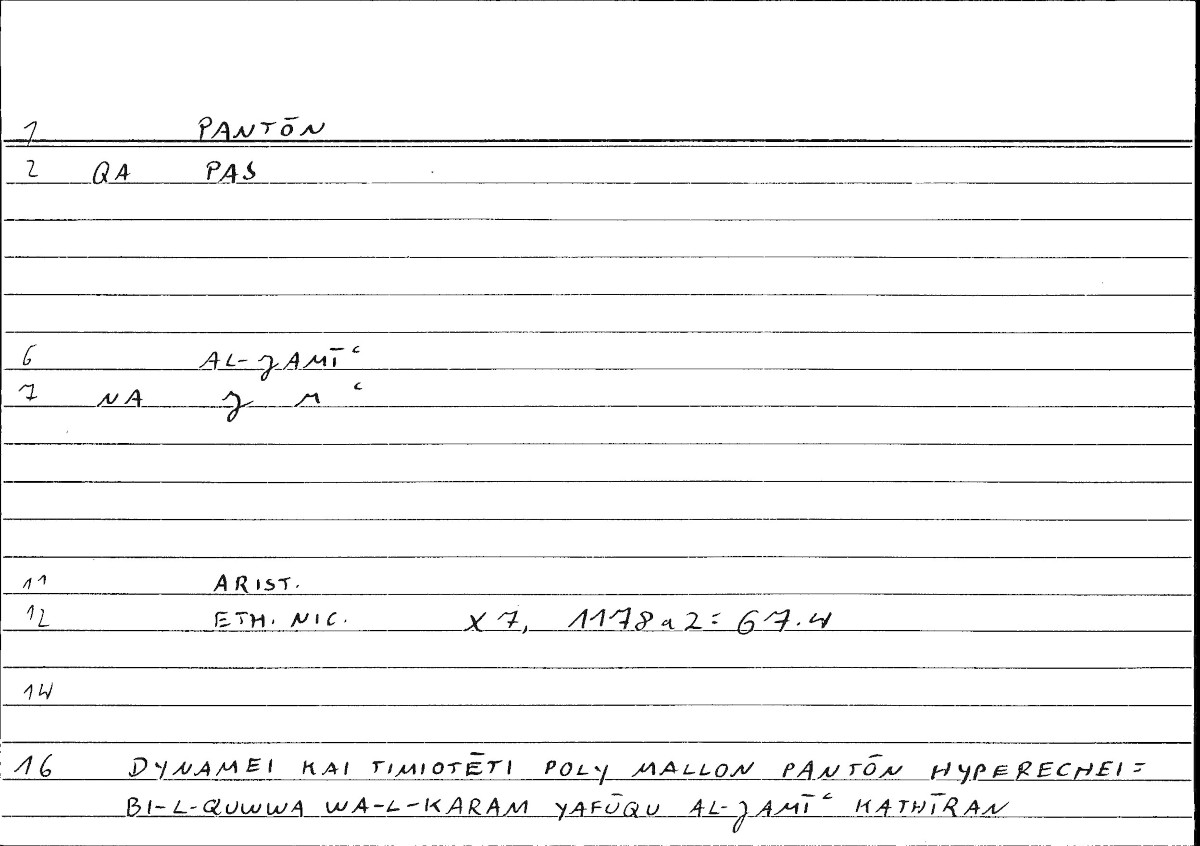 1 PANTŌN
2 QA PAS
6 AL-ǧAMĪʿ
7 NA ǧ M ʿ
11 ARIST.
12 ETH. NIC. X 7, 1178a2 = 67.4
14
16 DYNAMEI KAI TIMIOTĒTI POLY MALLON PANTŌN HYPERECHEI =
BI-L-QUWWA WA-L-KARAM YAFŪQU AL-ǧAMĪʿ KATHĪRAN